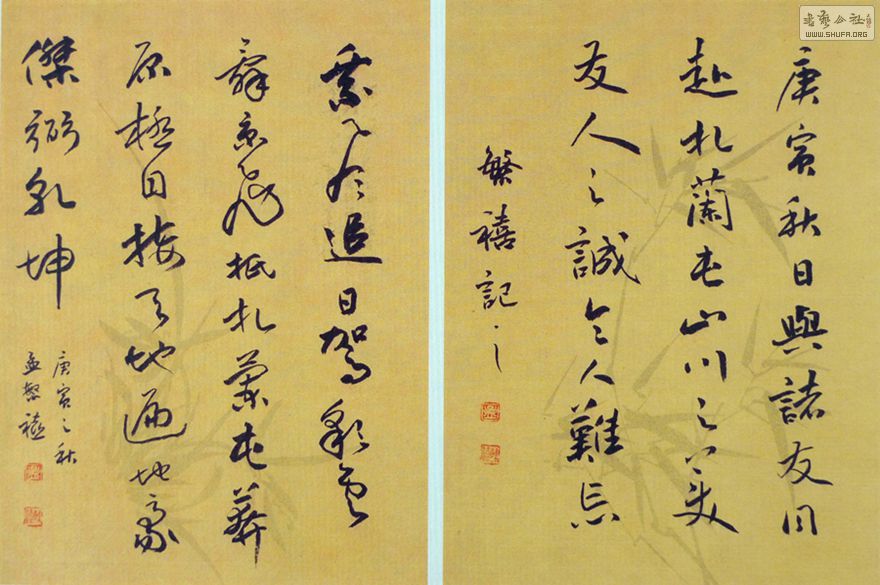 庚寅秋日與諸友同
赴扎蘭屯山川之美
友人之誠令人難忘
繁禧記之
乘風追日駕彩雲
辭京飛抵扎蘭屯莽
原極目接天地遍地豪
傑弼乾坤
庚寅之秋
孟繁禧
書藝公社
WWW.SHUFA.ORG